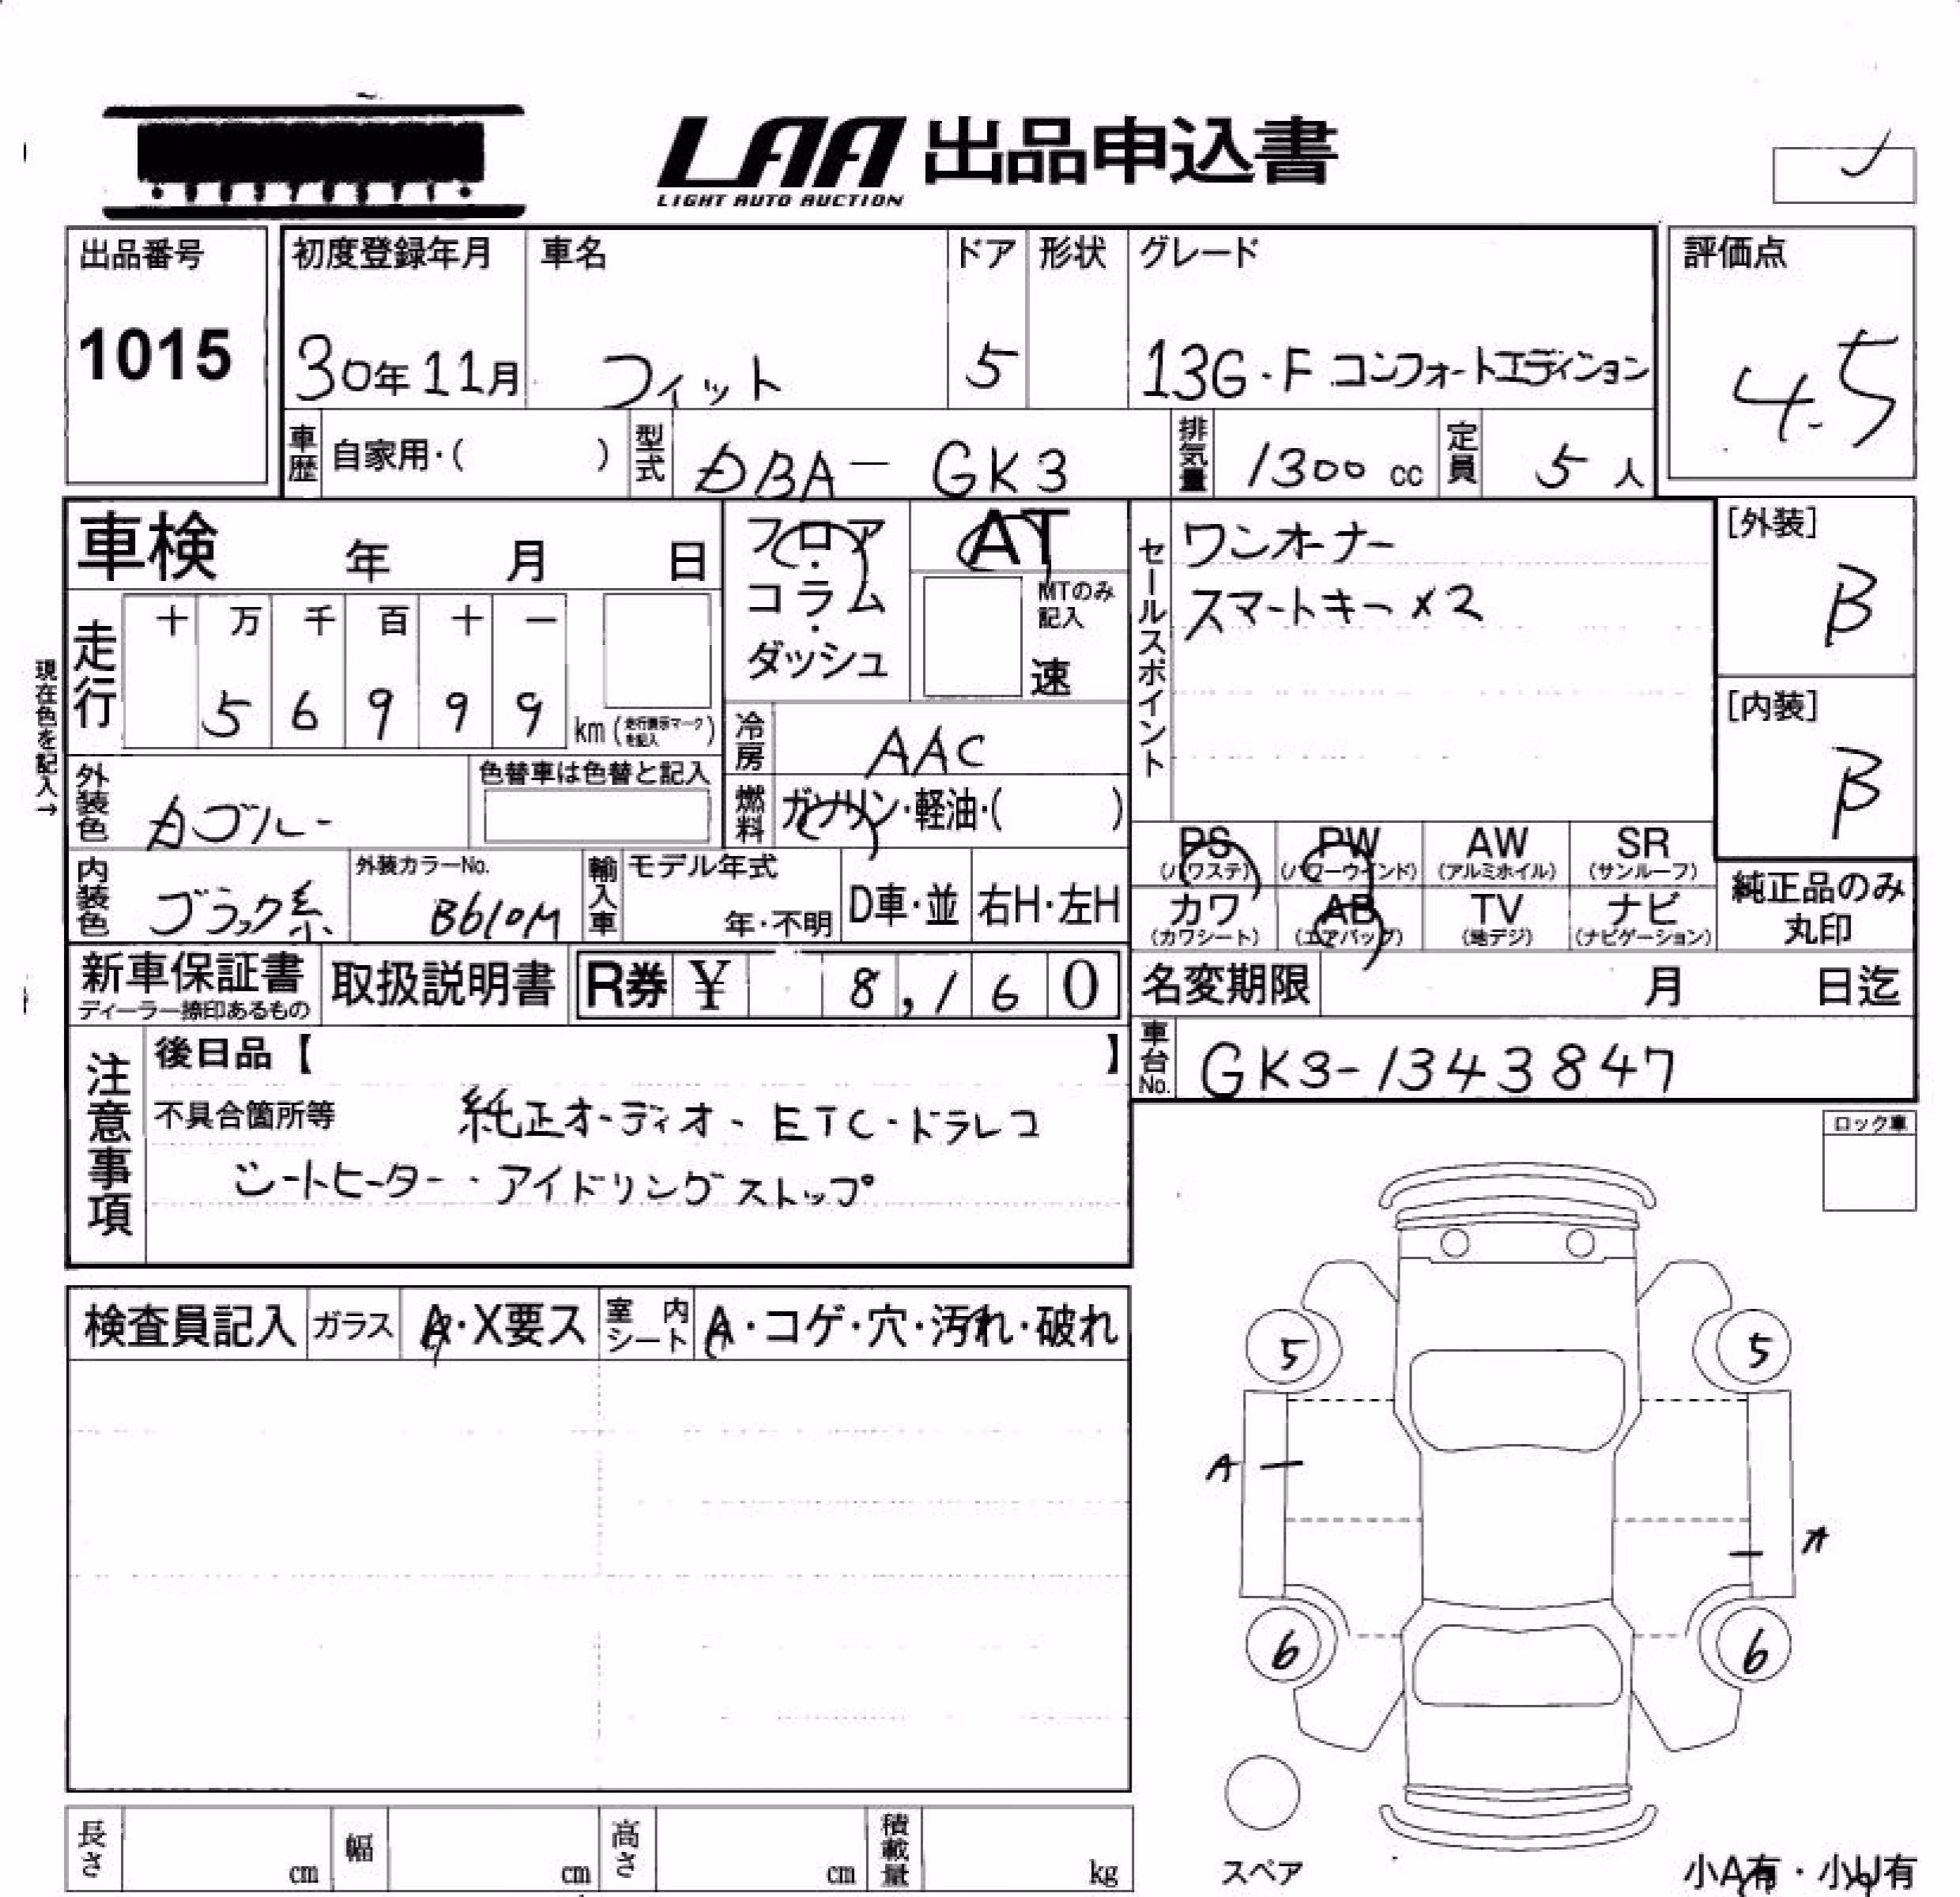 LAA 出品申込書
LIGHT AUTO AUCTION
出品番号
1015
初度登録年月
30年11月
車名
フィット
ドア
5
形状
グレード
13G・F コンフォートエディション
評価点
4.5
車歴 自家用・( )
型式 DBA－GK3
排気量 1300 cc
定員 5 人
車検 年 月 日
フロア・コラム・ダッシュ
AT
MTのみ記入
速
セールスポイント
ワンオーナー
スマートキー×2
[外装]
B
[内装]
B
現在色を記入→
走行
十 万 千 百 十 一
5 6 9 9 9 km (走行表示マークを記入)
冷房 AAC
燃料 ガソリン・軽油・( )
外装色
色替車は色替と記入
内装色 ブラック系
外装カラーNo. B610M
輸入車 モデル年式 年・不明
D車・並
右H・左H
PS (パワステ)
PW (パワーウインド)
AW (アルミホイル)
SR (サンルーフ)
カワ (カワシート)
AB (エアバッグ)
TV (地デジ)
ナビ (ナビゲーション)
純正品のみ丸印
新車保証書
ディーラー捺印あるもの
取扱説明書
R券 ¥ 8,160
名変期限 月 日迄
車台No. GK3-1343847
注意事項
後日品【 】
不具合箇所等 純正オーディオ・ETC・ドラレコ
シートヒーター・アイドリングストップ
ロック車
検査員記入
ガラス A・X要ス
室内シート A・コゲ・穴・汚れ・破れ
5 5
A
A
6 6
スペア
長さ cm
幅 cm
高さ cm
積載量 kg
小A有・小U有